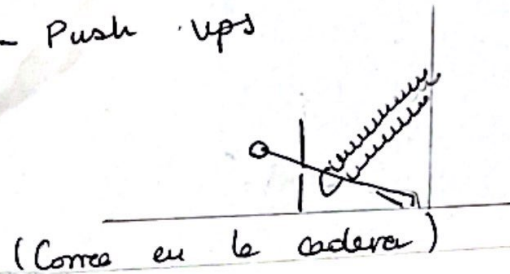 - Push ups
(Correa en la cadera)